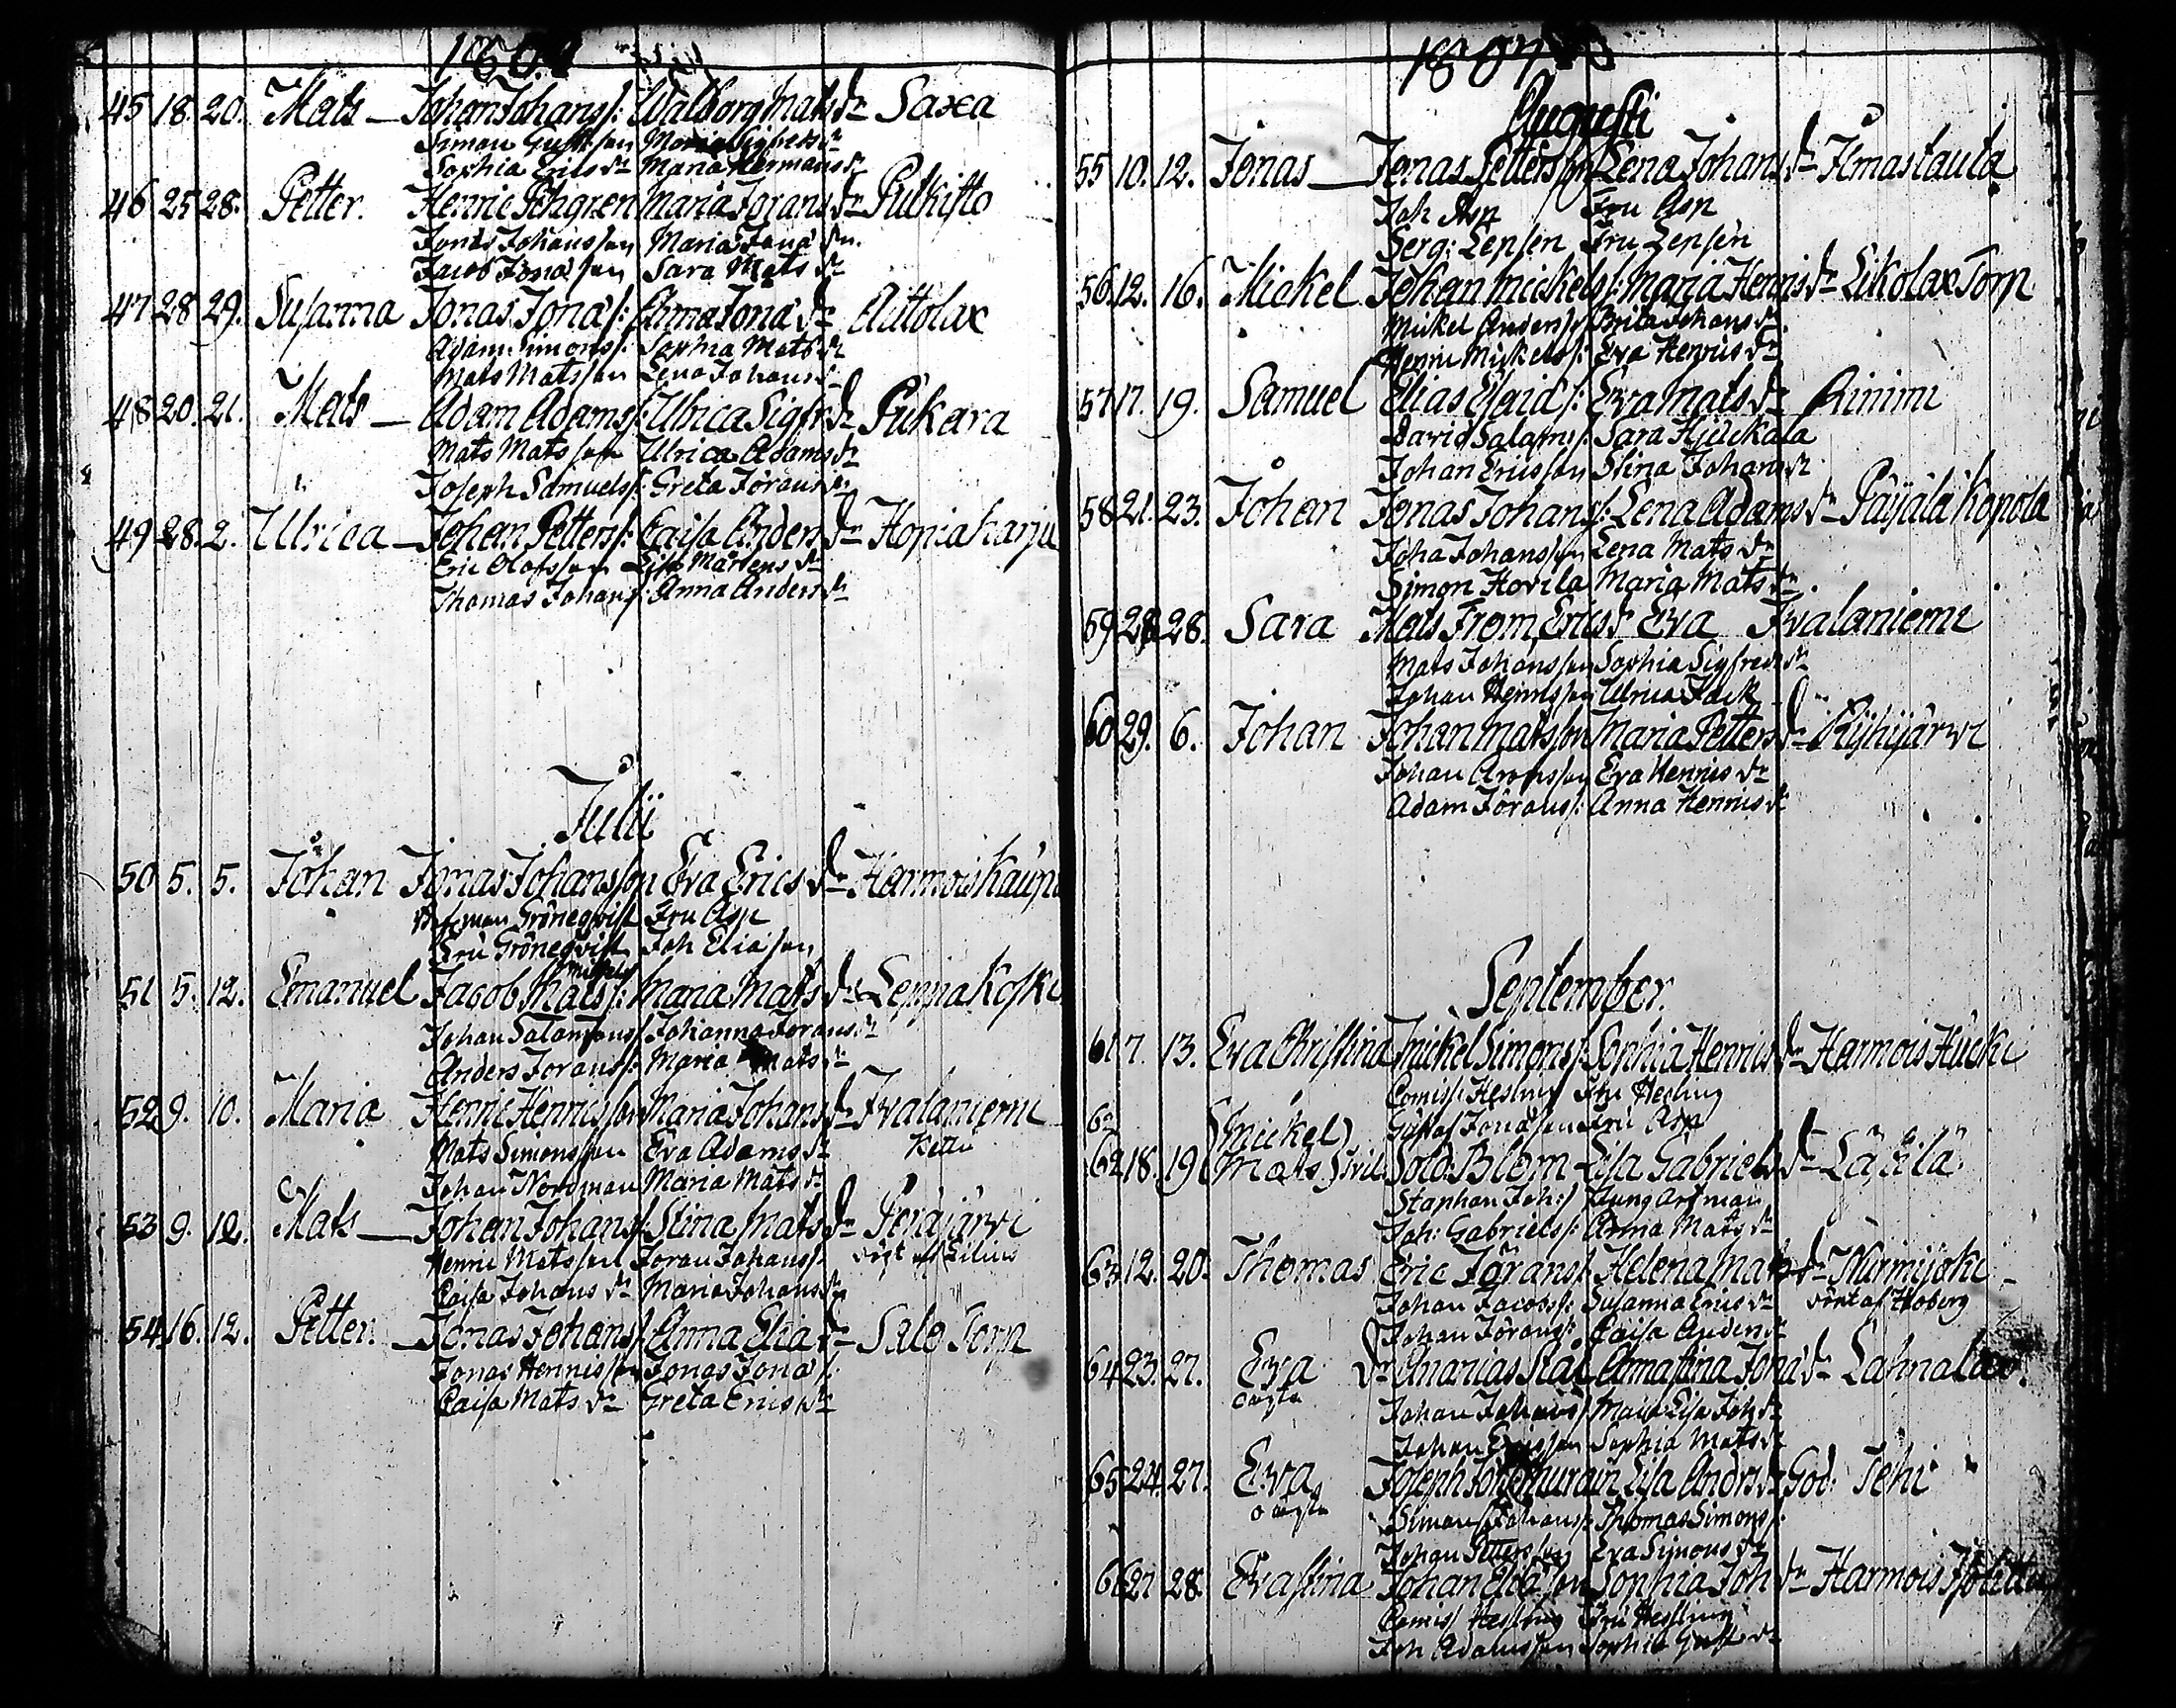 1807
45 18. 20. Mats — Johan Johans/: Walborg Mats dr Saxa
Simon Gust/son Maria Sigfreds dr
Sophia Erics dr Maria Hermans dr
46 25 28. Petter. Henric Pehgren Maria Jörans dr Pulkisto
Jonas Johansson Maria Jona dr.
Jacob Jonasson Sara Mats dr
47 28 29. Susanna Jonas Jona/: Anna Jona dr Aittolax
Adam Simons/: Sophia Mats dr
Mats Matsson Lena Johans dr
48 20. 21. Mats — Adam Adams/: Ulrica Sigfr dr Pukara
Mats Matsson Ulrica Adams dr
Joseph Samuels/: Greta Jörans dr
49 28. 2. Ulrica — Johan Petters/: Caisa Anders dr Hopiaharju
Eric Olofsson Lisa Mårtens dr
Thomas Johans/: Anna Anders dr
Julii
50 5. 5. Johan Jonas Johansson Eva Erics dr Harmois Kaupi
Gröneqvist Fru Asp
Fru Gröneqvist Joh Eliasson
Mickels/
51 5. 12. Emanuel Jacob Mats/: Maria Mats dr Leppäkoski
Johan Salomons/ Johanna Jörans dr
Anders Jörans/: Maria Mats dr
52 9. 10. Maria Henric Henricsson Maria Johans dr Ivalaniemi
Mats Simonsson Eva Adams dr Kettu
Johan Nordman Maria Mats dr
53 9. 12. Mats — Johan Johans/: Stina Mats dr Peräjärvi
Henric Matsson Jöran Johans/:
Caisa Johans dr Maria Johans dr
54 16. 12. Petter. — Jonas Johans/: Anna Elia dr Salo Torp
Jonas Henricsson Jonas Jona/:
Caisa Mats dr Greta Erics dr
1807
Augusti
55 10. 12. Jonas — Jonas Pettersson Lena Johans dr Ilmastauta
Joh Asp Fru Asp
Serg: Lepsen Fru Lepsen
56 12. 16. Mickel Johan Mickels/: Maria Henrics dr Likolax Torp
Mickel Anders/: Brita Johans dr
Henric Mickels/: Eva Henrics dr
57 17. 19. Samuel Elias Esaia/: Eva Mats dr Rinimi
David Salom/: Sara Hjuckala
Johan Ericsson Stina Johans dr
58 21. 23. Johan Jonas Johans/: Lena Adams dr Päijälä Kopola
Joha Johansson Lena Mats dr
Simon Hovila Maria Mats dr
59 28 28. Sara Mats From Erics dr Eva Ivalaniemi
Mats Johansson Sophia Sigfreds dr
Johan Henricsson Ulrica Fack
60 29. 6. Johan Johan Matsson Maria Petters dr Ryhijärvi
Johan Aronsson Eva Henrics dr
Adam Jörans/: Anna Henrics dr
September.
61 7. 13. Eva Christina Mickel Simons/: Sophia Henrics dr Harmois Hucki
Comiss: Hesling Fru Hesling
62 (Mickel) Gustaf Jonasson Fru Asp
62 18. 19 (Mats) tvil. Sold: Blom Lisa Gabriels dr Läkilä
Staphan Joh:/ Jung Artman
Joh: Gabriels/: Anna Mats dr
63 12. 20. Thomas Eric Jörans/: Helena Mats dr Nurmijoki
Johan Jacobs/: Susanna Erics dr Förut af Hoberg
Johan Jörans/: Caisa Anders dr
64 23. 27. Eva dr Ananias Stål Annastina Jona dr Lahnalax.
oägta Johan Johans/: Maja Lisa Joh dr
Johan Ericsson Sophia Mats dr
65 24 27. Eva Joseph Lisa Anders dr God: Jehi
oägta Simon Johans/: Thomas Simons/:
Johan Pettersson Eva Simons dr
66 27 28. Evastina Johan Eliasson Sophia Joh dr Harmois
Comiss/ Hesling Fru Hesling
Joh Adamsson Sophia Gust dr